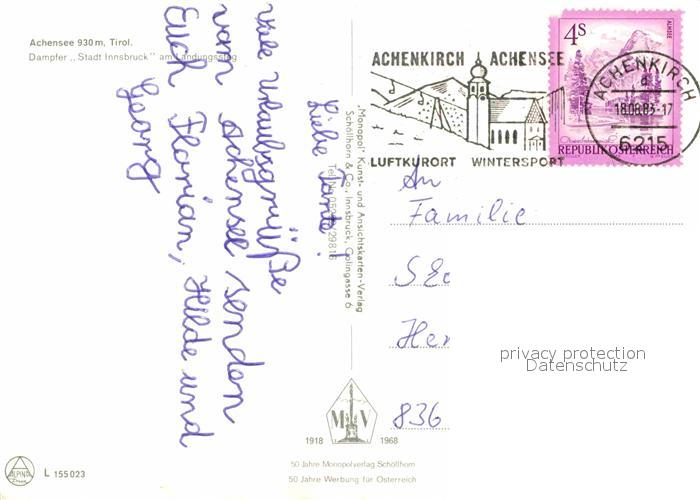 Achensee 930 m, Tirol.
Dampfer „Stadt Innsbruck" am Landungssteg
Liebe Tante!
viele Urlaubsgrüße
vom Achensee senden
Euch Florian, Hilde und
Georg
„Monopol" Kunst- und Ansichtskarten-Verlag
Schöllhorn & Co., Innsbruck, Colingasse 6
ACHENKIRCH ACHENSEE
LUFTKURORT WINTERSPORT
4S
ALMSEE
REPUBLIK ÖSTERREICH
ACHENKIRCH
a
18.08.83-17
6215
An
Familie
Her
836
privacy protection
Datenschutz
M V
1918 1968
50 Jahre Monopolverlag Schöllhorn
50 Jahre Werbung für Österreich
ALPINA
L 155023